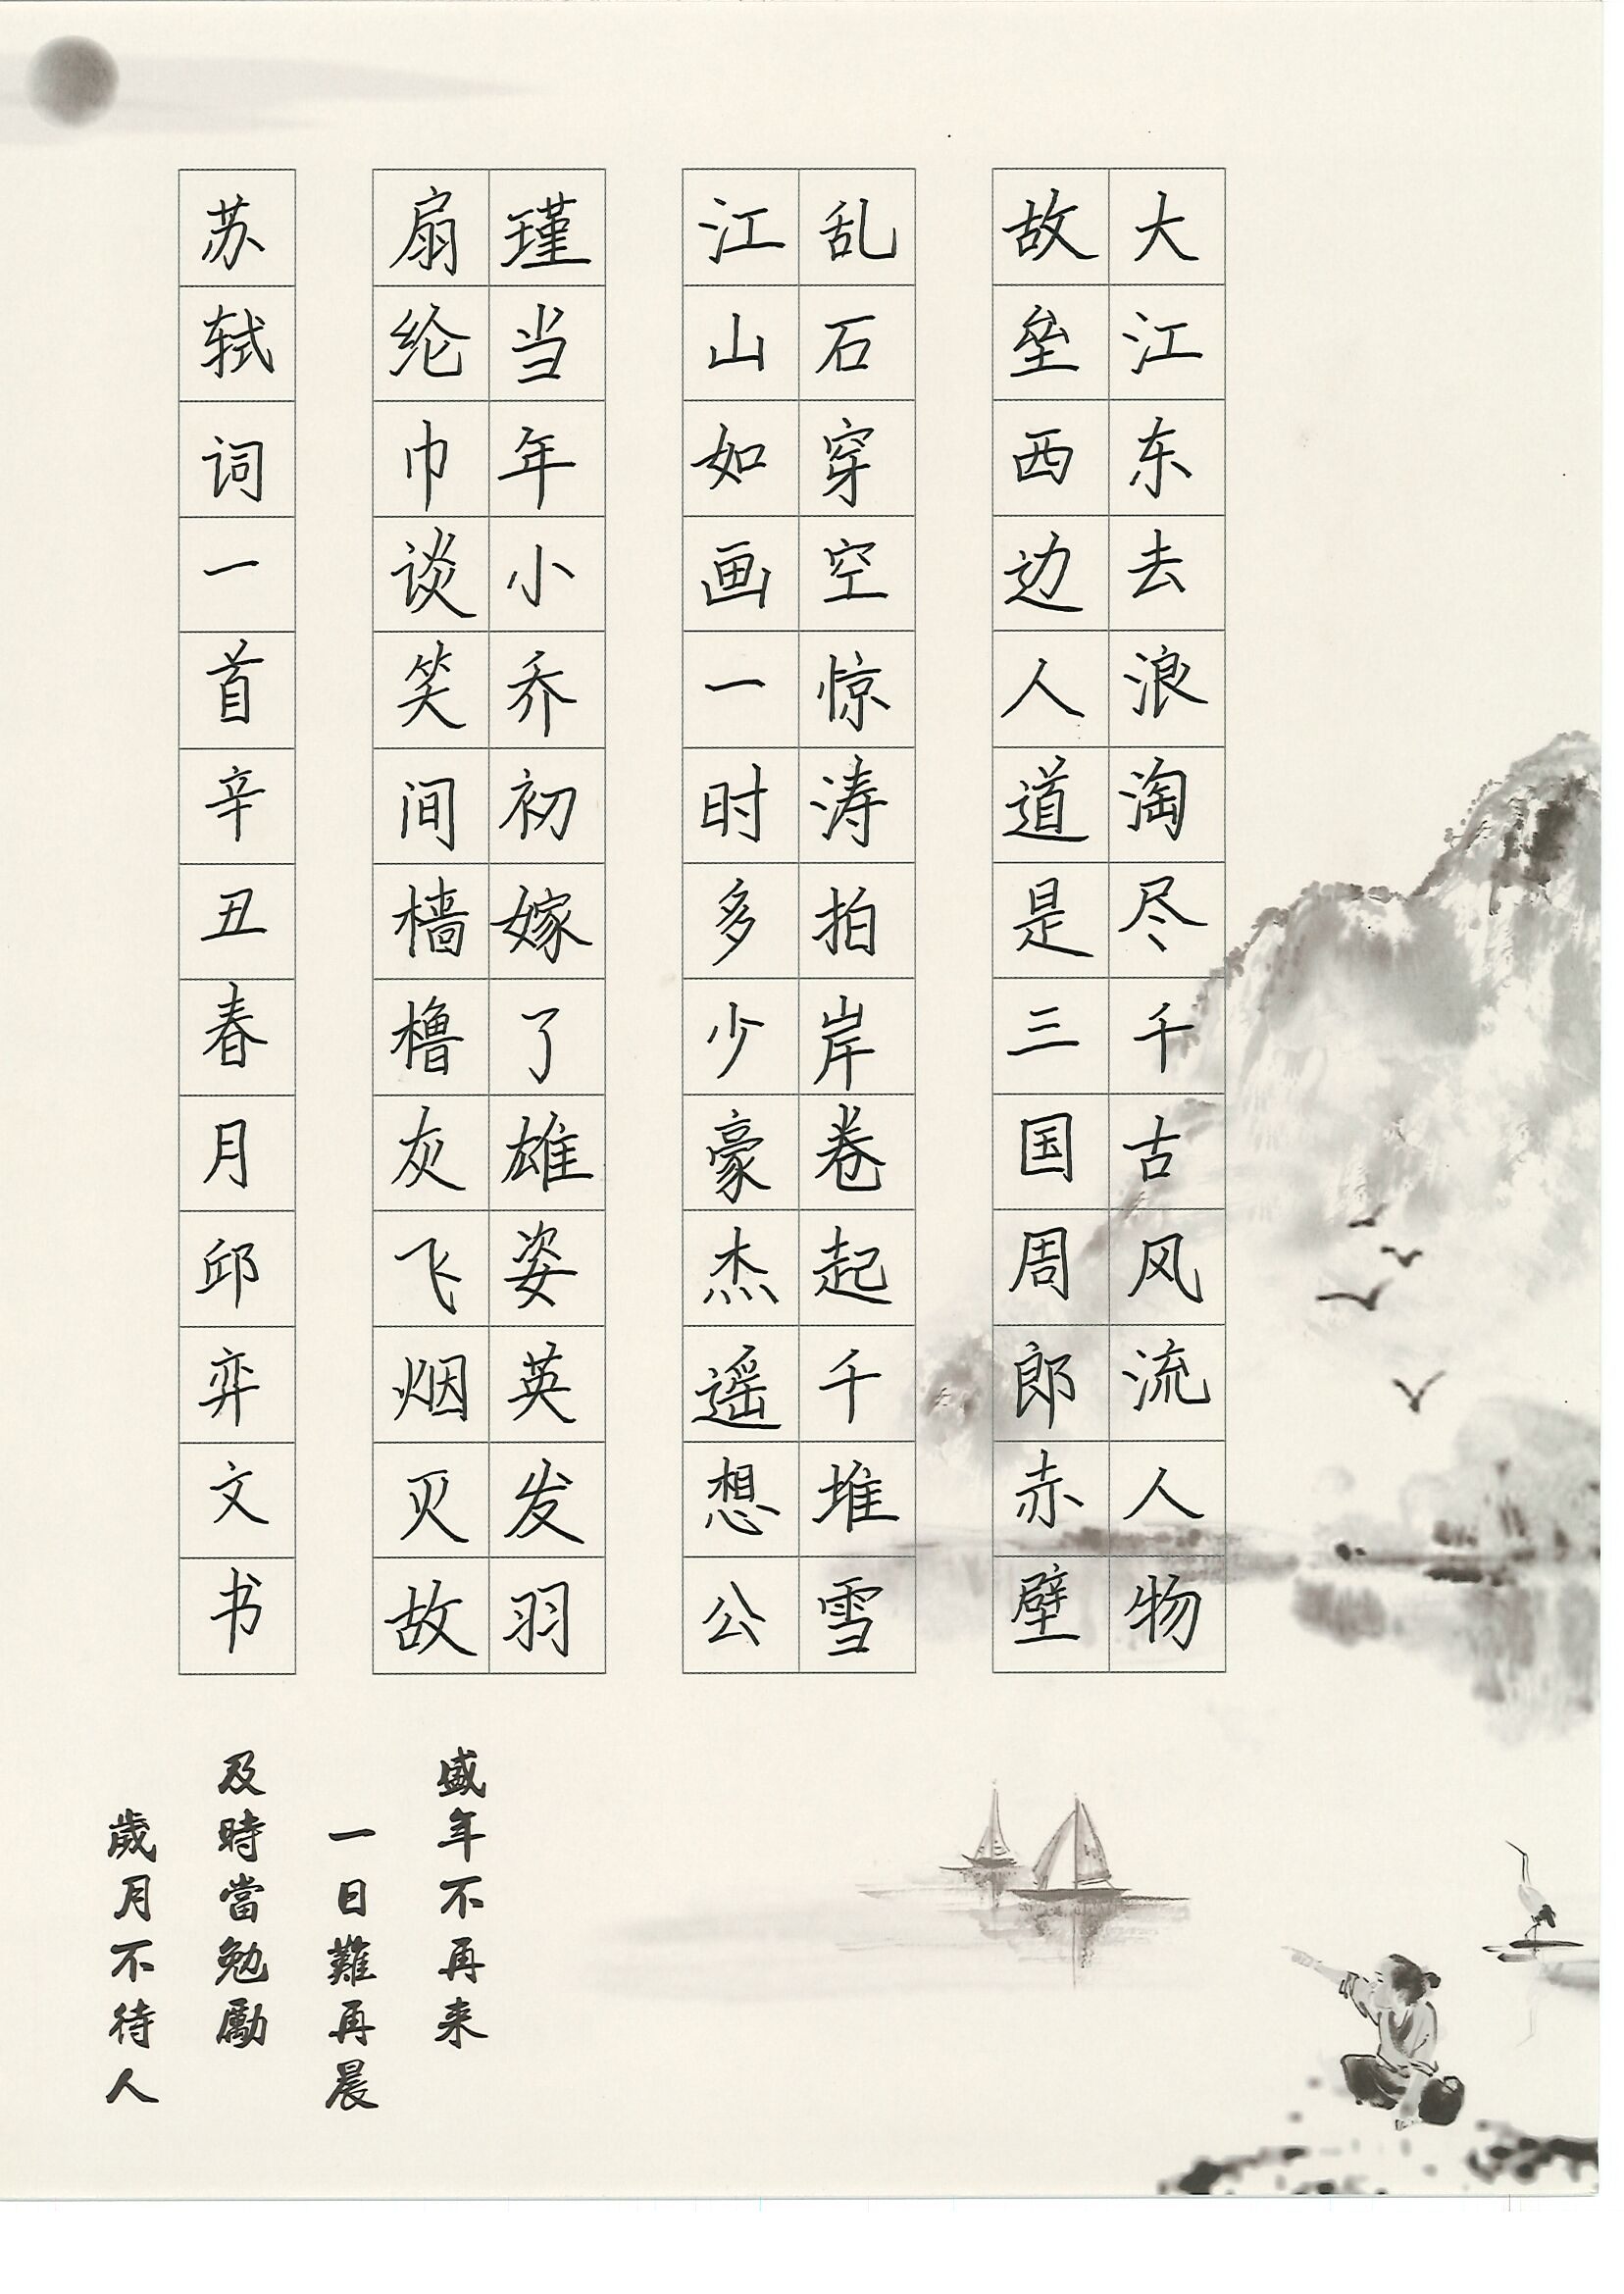 大江东去浪淘尽千古风流人物
故垒西边人道是三国周郎赤壁
乱石穿空惊涛拍岸卷起千堆雪
江山如画一时多少豪杰遥想公
瑾当年小乔初嫁了雄姿英发羽
扇纶巾谈笑间樯橹灰飞烟灭故
苏轼词一首辛丑春月邱弈文书
盛年不再来
一日難再晨
及時當勉勵
歲月不待人